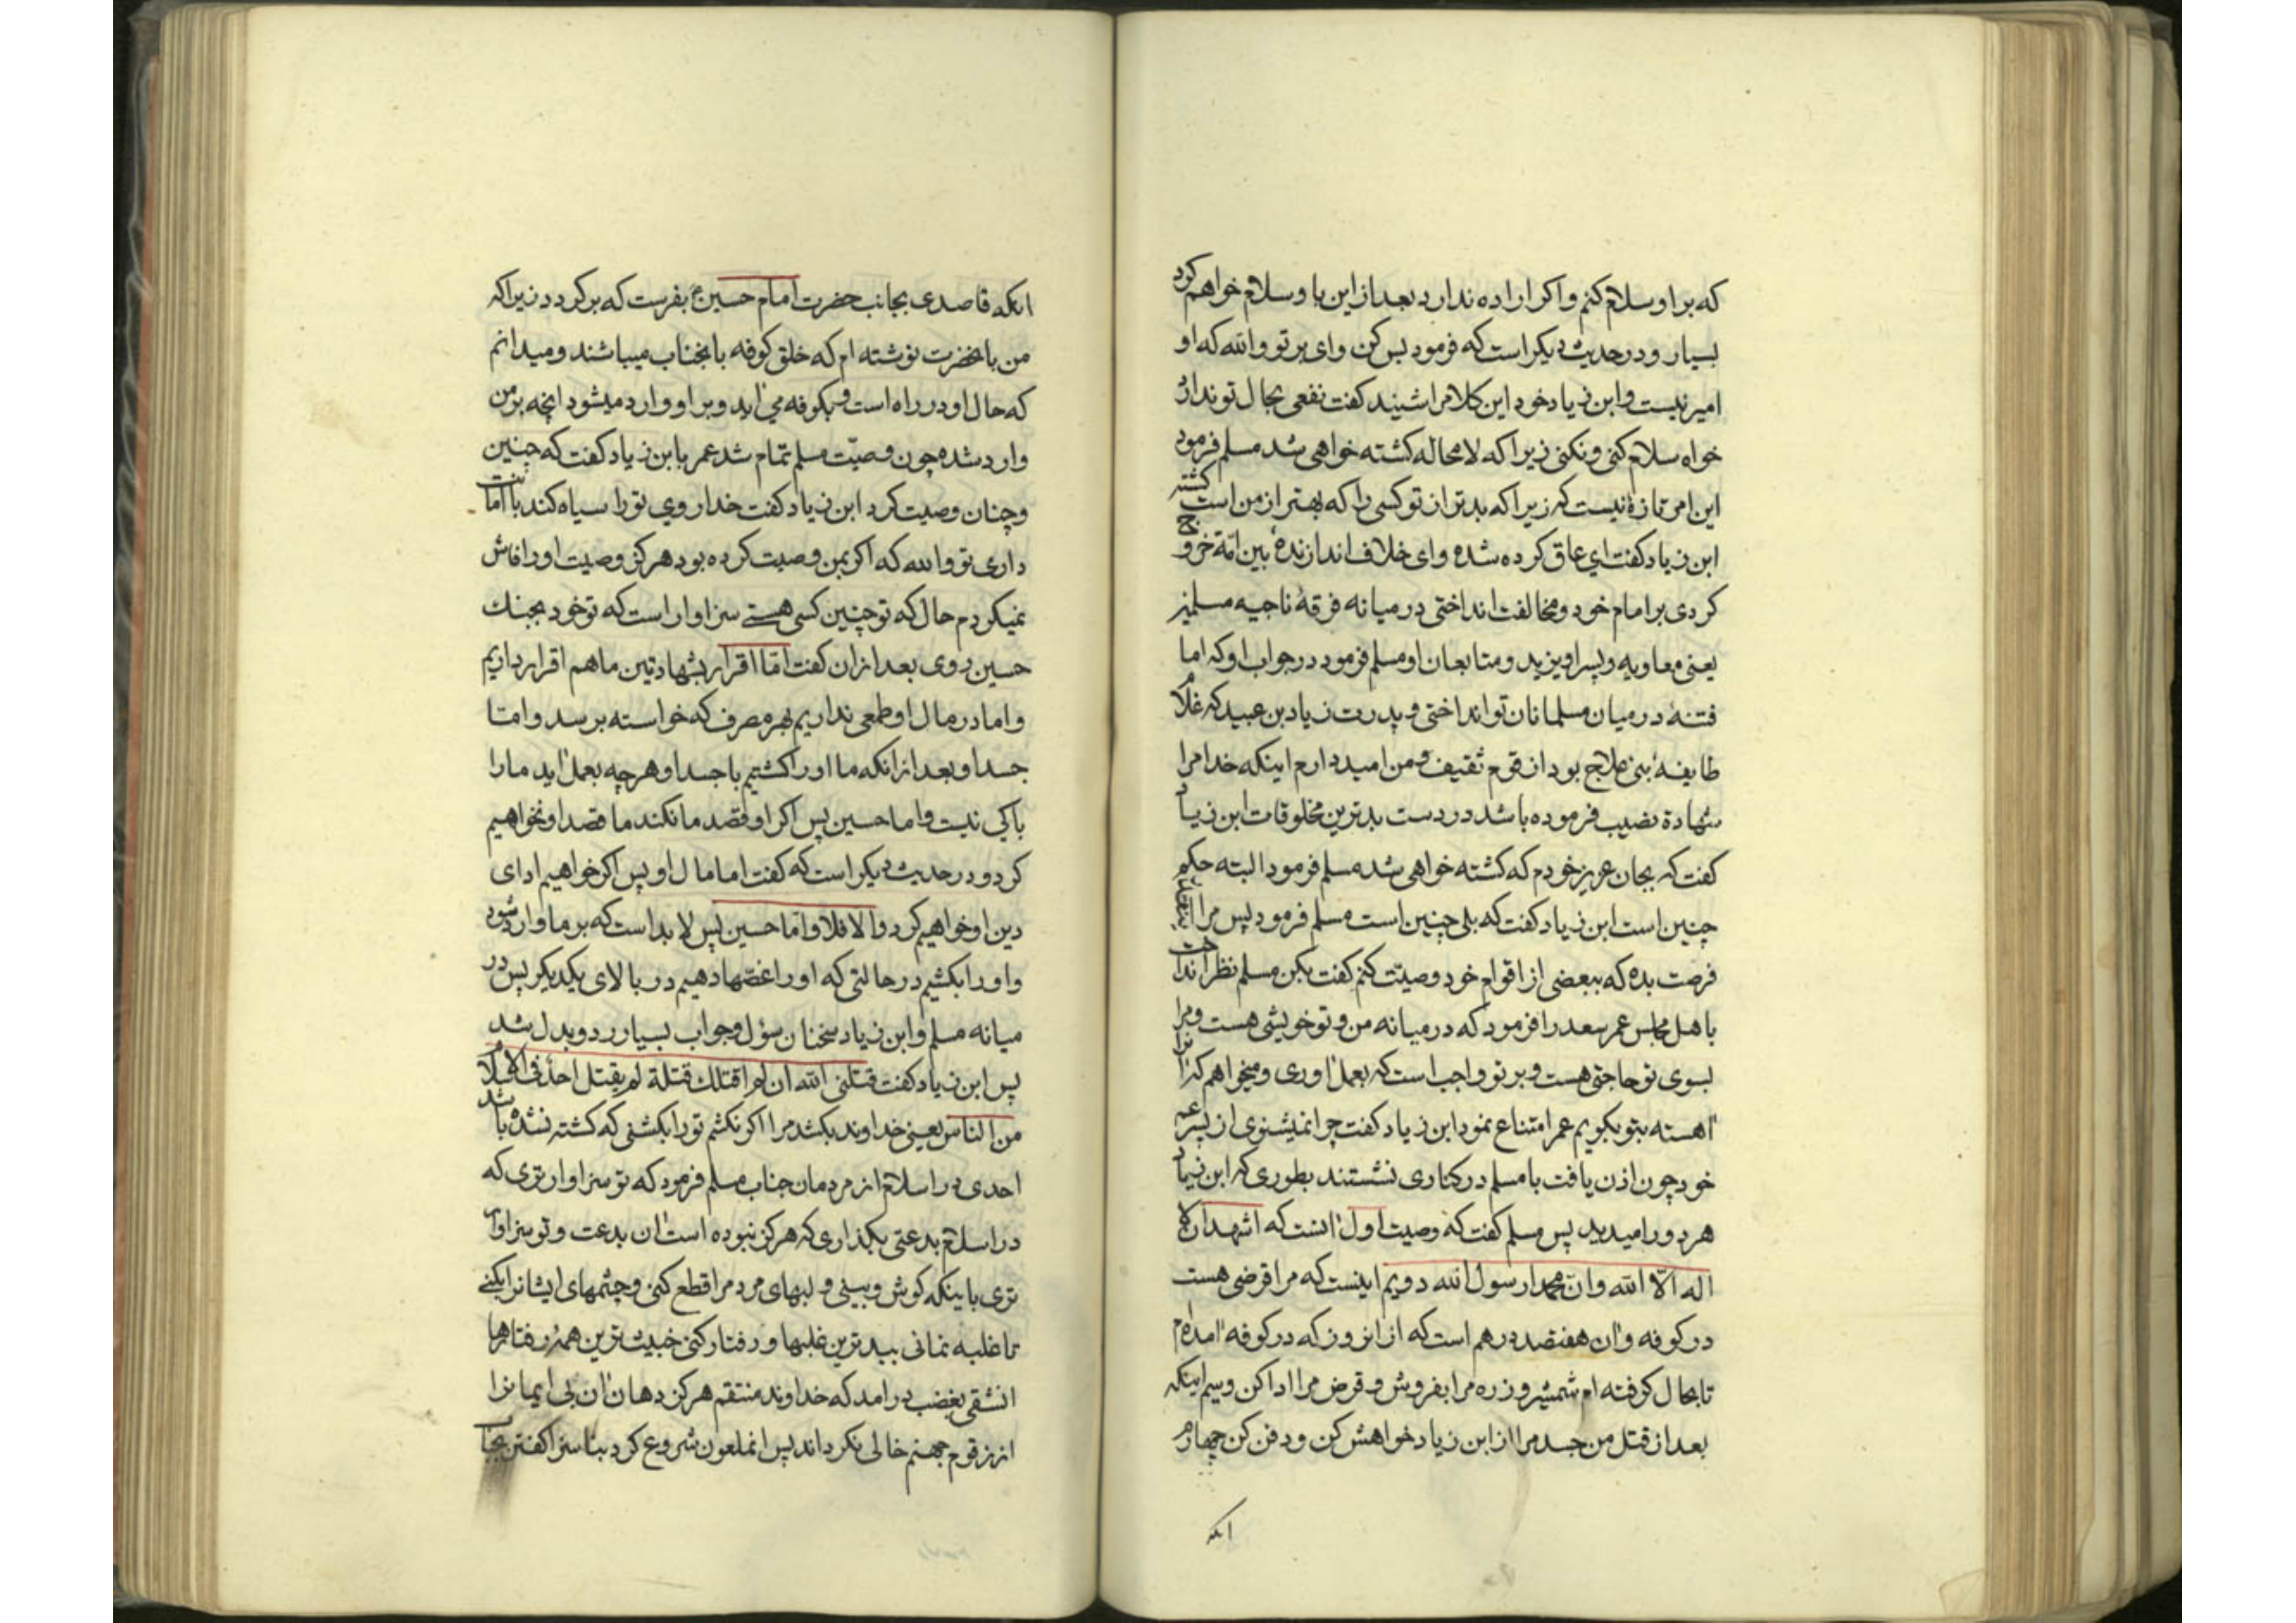 که بر او سلام کنم و اکر اراده ندارد بعد از این با و سلام خواهم کرد
بسیار و در حدیث دیکر است که فرمود بس کن وای بر تو والله که او
امیر نیست و ابن زیاد خود این کلام را شیند کفت نفعی بحال تو ندارد
خواه سلام کنی و نکنی زیرا که لا محاله کشته خواهی شد مسلم فرمود
این امر تازهٔ نیست که زیرا که بدتر از تو کسی را که بهتر از من است کشته
ابن زیاد کفت ای عاق کرده شده و ای خلاف اندازندهٔ بین امّة خروج
کردی بر امام خود و مخالفت انداختی در میانه فرقهٔ ناجیه مسلمین
یعنی معاویه و پسر او یزید و متابعان او مسلم فرمود در جواب او که اما
فتنهٔ در میان مسلمانان تو انداختی و پدرت زیاد بن عبید که غلام
طایفهٔ بنی علاج بود از قوم ثقیف و من امید دارم اینکه خدا مرا
شهادة نصیب فرموده باشد در دست بدترین مخلوقات ابن زیاد
کفت که بجان عزیز خودم که کشته خواهی شد مسلم فرمود البته حکم
چنین است ابن زیاد کفت که بلی چنین است مسلم فرمود پس مرا
فرصت بده که ببعضی از اقوام خود وصیّت کنم کفت بکن مسلم نظر انداخت
با هل مجلس عمر سعد را فرمود که در میانه من و تو خویشی هست و مرا
بسوی تو حاجتی هست و بر تو واجب است که بعمل اوری و میخواهم که انرا
اهسته بتو بکویم عمر امتناع نمود ابن زیاد کفت چرا نمیشنوی از پسر عم
خود چون اذن یافت با مسلم در کناری نشستند بطوری که ابن زیاد
هر دو را میدید پس مسلم کفت که وصیت اول انست که اشهد ان لا
اله الّا الله و انّ محمدا رسول الله دویم اینست که مرا قرضی هست
در کوفه و ان هفتصد درهم است که از انروز که در کوفه امده ام
تا بحال کرفته ام شمشیر و زره مرا بفروش و قرض مرا ادا کن و سیم اینکه
بعد از قتل من جسد مرا از ابن زیاد خواهش کن و دفن کن چهارم
انکه
انکه قاصدی بجانب حضرت امام حسین ع بفرست که بر کردد زیرا که
من بانحضرت نوشته ام که خلق کوفه با انجناب میباشند و میدانم
که حال او در راه است و بکوفه می اید و بر او وارد میشود انچه بر من
وارد شده چون وصیّت مسلم تمام شد عمر با بن زیاد کفت که چنین
و چنان وصیت کرد ابن زیاد کفت خدا روی تو را سیاه کند با امانت
داری تو والله که اکر بمن وصیت کرده بود هرکز وصیت او را فاش
نمیکردم حال که تو چنین کسی هستی سزاوار است که تو خود بجنک
حسین روی بعد از ان کفت امّا اقرار بشهادتین ما هم اقرار داریم
و اما در مال او طمعی نداریم بهر مصرف که خواسته برسد و امّا
جسد او بعد از انکه ما او را کشتیم با جسد او هر چه بعمل اید ما را
باکی نیست و اما حسین پس اکر او قصد ما نکند ما قصد او نخواهیم
کرد و در حدیث دیکر است که کفت اما مال او پس اکر خواهیم ادای
دین او خواهیم کرد و الا فلا و امّا حسین پس لا بد است که بر ما وارد شود
و او را بکشیم در حالتی که او را غصّها دهیم در بالای یکدیکر پس در
میانه مسلم و ابن زیاد سخنان سؤل و جواب بسیار رد و بدل شد
پس ابن زیاد کفت قتلنی الله ان لم اقتلک قتلة لم یقتل احد فی الاسلام
من الناس یعنی خداوند بکشد مرا اکر نکشم تو را بکشنی که کشته نشده باشد
احدی در اسلام از مردمان جناب مسلم فرمود که تو سزاوار تری که
در اسلام بدعتی بکذاری که هرکز نبوده است ان بدعت و تو سزاوار
تری باینکه کوش و بینی و لبهای مردم را قطع کنی و چشمهای ایشانرا بکنی
تا غلبه نمائی ببدترین غلبها و رفتار کنی خبیث ترین همهٔ رفتارها
انشقی بغضب درامد که خداوند منتقم هرکز دهان ان بی ایمانرا
از زقوم جهنم خالی نکرداند پس انملعون شروع کرد بناسزا کفتن بجناب